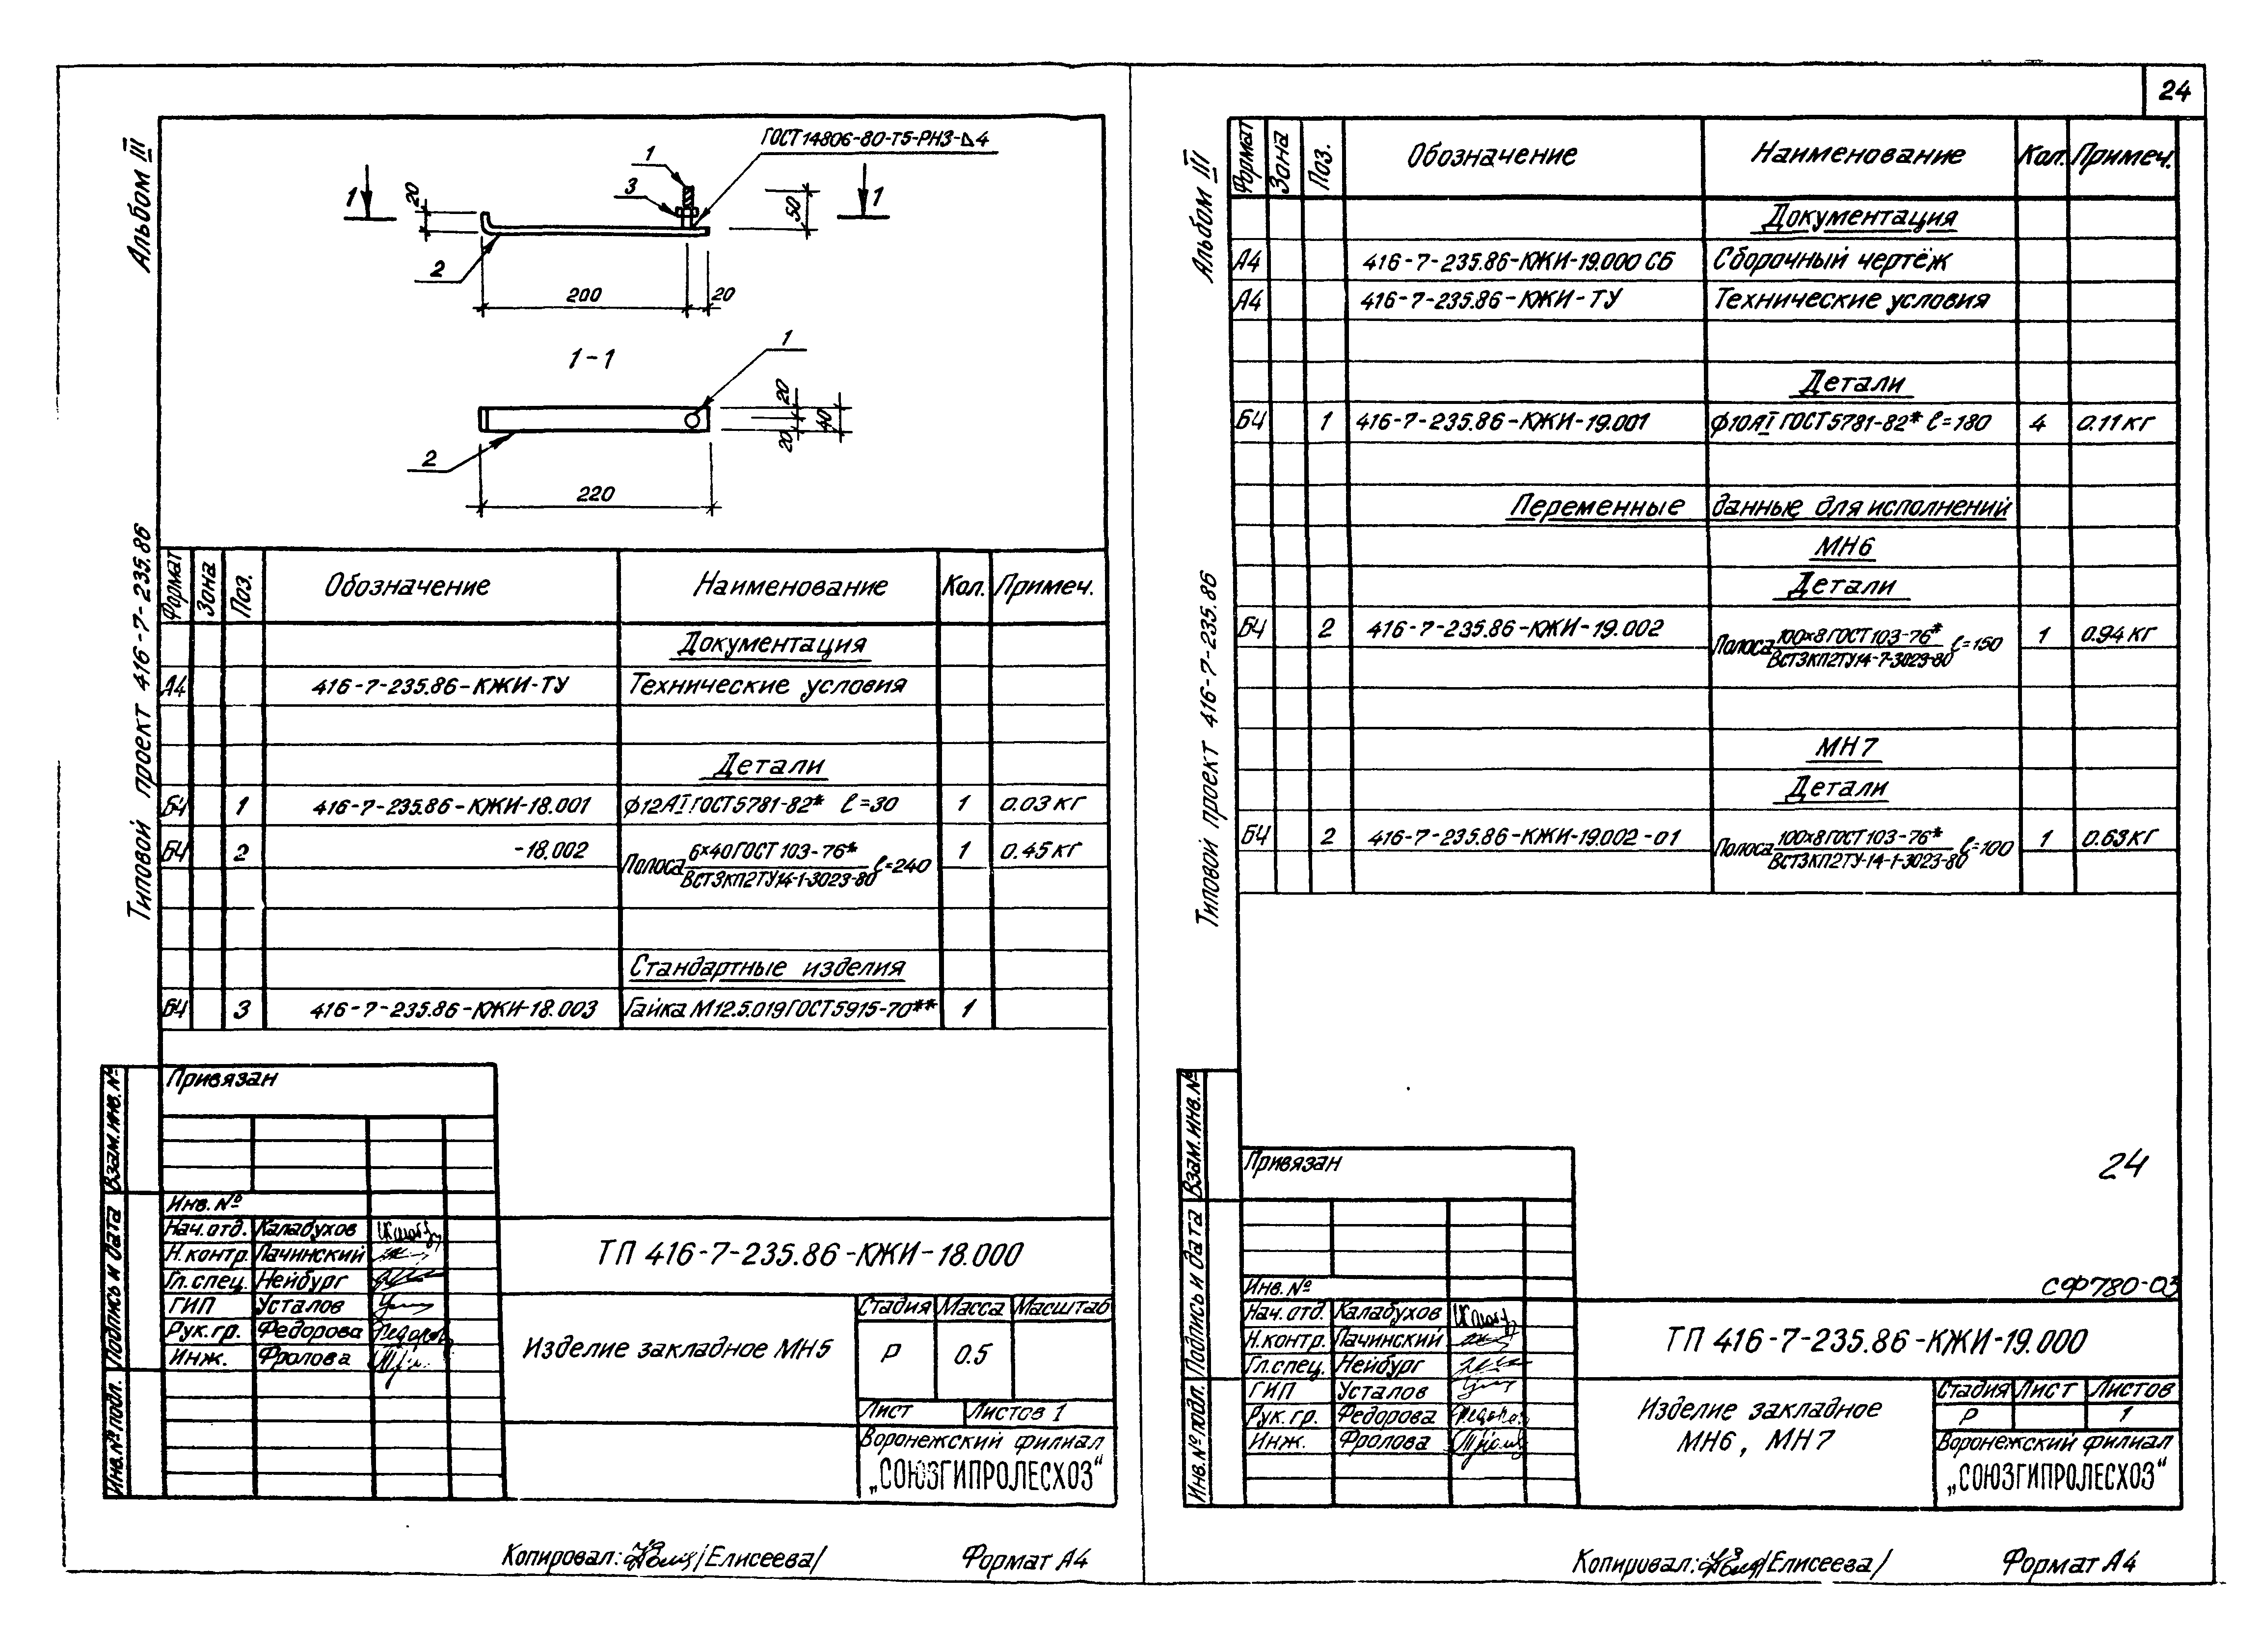 Альбом III
Типовой проект 416-7-235.86
ГОСТ 14806-80-Т5-РНЗ-Δ4
1
3
1
1
20
50
2
200
20
1-1
1
20
40
20
2
220
Формат Зона Поз. Обозначение Наименование Кол. Примеч.
Документация
А4 416-7-235.86-КЖИ-ТУ Технические условия
Детали
БЧ 1 416-7-235.86-КЖИ-18.001 ф12АI ГОСТ 5781-82* ℓ=30 1 0.03 кг
БЧ 2 -18.002 Полоса 6×40 ГОСТ 103-76* ℓ=240 1 0.45 кг
ВСТ3КП2ТУ14-1-3023-80
Стандартные изделия
БЧ 3 416-7-235.86-КЖИ-18.003 Гайка М12.5.019 ГОСТ 5915-70** 1
Привязан
Инв. №
Нач. отд. Калабухов
Н. контр. Лачинский
Гл. спец. Нейбург
ГИП Усталов
Рук. гр. Федорова
Инж. Фролова
Взам. инв. №
Подпись и дата
Инв. № подл.
ТП 416-7-235.86-КЖИ-18.000
Изделие закладное МН5
Стадия Масса Масштаб
Р 0.5
Лист Листов 1
Воронежский филиал
„СОЮЗГИПРОЛЕСХОЗ“
Копировал: /Елисеева/ Формат А4
24
Альбом III
Типовой проект 416-7-235.86
Формат Зона Поз. Обозначение Наименование Кол. Примеч.
Документация
А4 416-7-235.86-КЖИ-19.000 СБ Сборочный чертёж
А4 416-7-235.86-КЖИ-ТУ Технические условия
Детали
БЧ 1 416-7-235.86-КЖИ-19.001 ф10АI ГОСТ 5781-82* ℓ=180 4 0.11 кг
Переменные данные для исполнений
МН6
Детали
БЧ 2 416-7-235.86-КЖИ-19.002 Полоса 100×8 ГОСТ 103-76* ℓ=150 1 0.94 кг
ВСТ3КП2ТУ14-7-3023-80
МН7
Детали
БЧ 2 416-7-235.86-КЖИ-19.002-01 Полоса 100×8 ГОСТ 103-76* ℓ=100 1 0.63 кг
ВСТ3КП2ТУ-14-1-3023-80
24
Привязан
Инв. №
СФ780-03
Нач. отд. Калабухов
Н. контр. Лачинский
Гл. спец. Нейбург
ГИП Усталов
Рук. гр. Федорова
Инж. Фролова
Взам. инв. №
Подпись и дата
Инв. № подл.
ТП 416-7-235.86-КЖИ-19.000
Изделие закладное
МН6, МН7
Стадия Лист Листов
Р 1
Воронежский филиал
„СОЮЗГИПРОЛЕСХОЗ“
Копировал: /Елисеева/ Формат А4